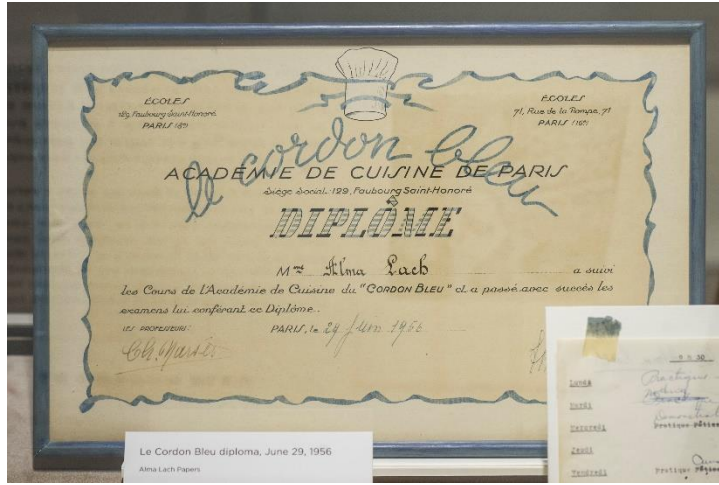 ÉCOLES
129, Faubourg Saint-Honoré
PARIS (8e)
ÉCOLES
71, Rue de la Pompe, 71
PARIS (16e)
le cordon bleu
ACADÉMIE DE CUISINE DE PARIS
Siège Social: 129, Faubourg Saint-Honoré
DIPLÔME
Mme Alma Lach a suivi
les Cours de l'Académie de Cuisine du "CORDON BLEU" et a passé avec succès les
examens lui conférant ce Diplôme.
LES PROFESSEURS:
PARIS, le 29 Juin 1956
Le Cordon Bleu diploma, June 29, 1956
Alma Lach Papers
Lundi
Pratique
Mardi
Mercredi
Jeudi
Vendredi
Pratique